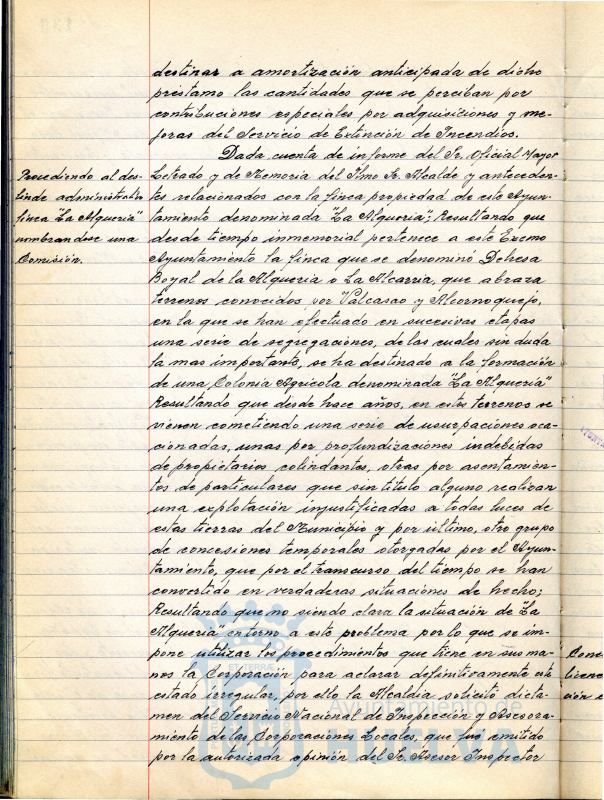 destinar a amortización anticipada de dicho
préstamo las cantidades que se perciban por
contribuciones especiales por adquisiciones y me-
joras del Servicio de Extinción de Incendios.
Dada cuenta de informe del Sr. Oficial Mayor
Letrado y de Memoria del Ilmo Sr. Alcalde y anteceden-
tes relacionados con la finca propiedad de este Ayun-
tamiento denominada "La Alquería"; Resultando que
desde tiempo inmemorial pertenece a este Excmo
Ayuntamiento la finca que se denominó Dehesa
Boyal de la Alquería o La Alcarria, que abraza
terrenos conocidos por Valcasao y Alcornoquejo,
en la que se han efectuado en sucesivas etapas
una serie de segregaciones, de las cuales sin duda
la mas importante, se ha destinado a la formación
de una Colonia Agrícola denominada "La Alquería"
Resultando que desde hace años, en estos terrenos se
vienen cometiendo una serie de usurpaciones oca-
cionadas, unas por profundizaciones indebidas
de propietarios colindantes, otras por asentamien-
tos de particulares que sin titulo alguno realizan
una explotación injustificadas a todas luces de
estas tierras del Municipio y por último, otro grupo
de concesiones temporales otorgadas por el Ayun-
tamiento, que por el transcurso del tiempo se han
convertido en verdaderas situaciones de hecho;
Resultando que no siendo clara la situación de "La
Alquería" en torno a este problema por lo que se im-
pone utilizar los procedimientos que tiene en sus ma-
nos la Corporación para aclarar definitivamente este
estado irregular, por ello la Alcaldía solicitó dicta-
men del Servicio Nacional de Inspección y Asesora-
miento de las Corporaciones Locales, que fue emitido
por la autorizada opinión del Sr. Asesor Inspector
Procediendo al des-
linde administrativo
finca "La Alquería"
nombrandose una
Comisión.
Ayuntamiento de
HUELVA